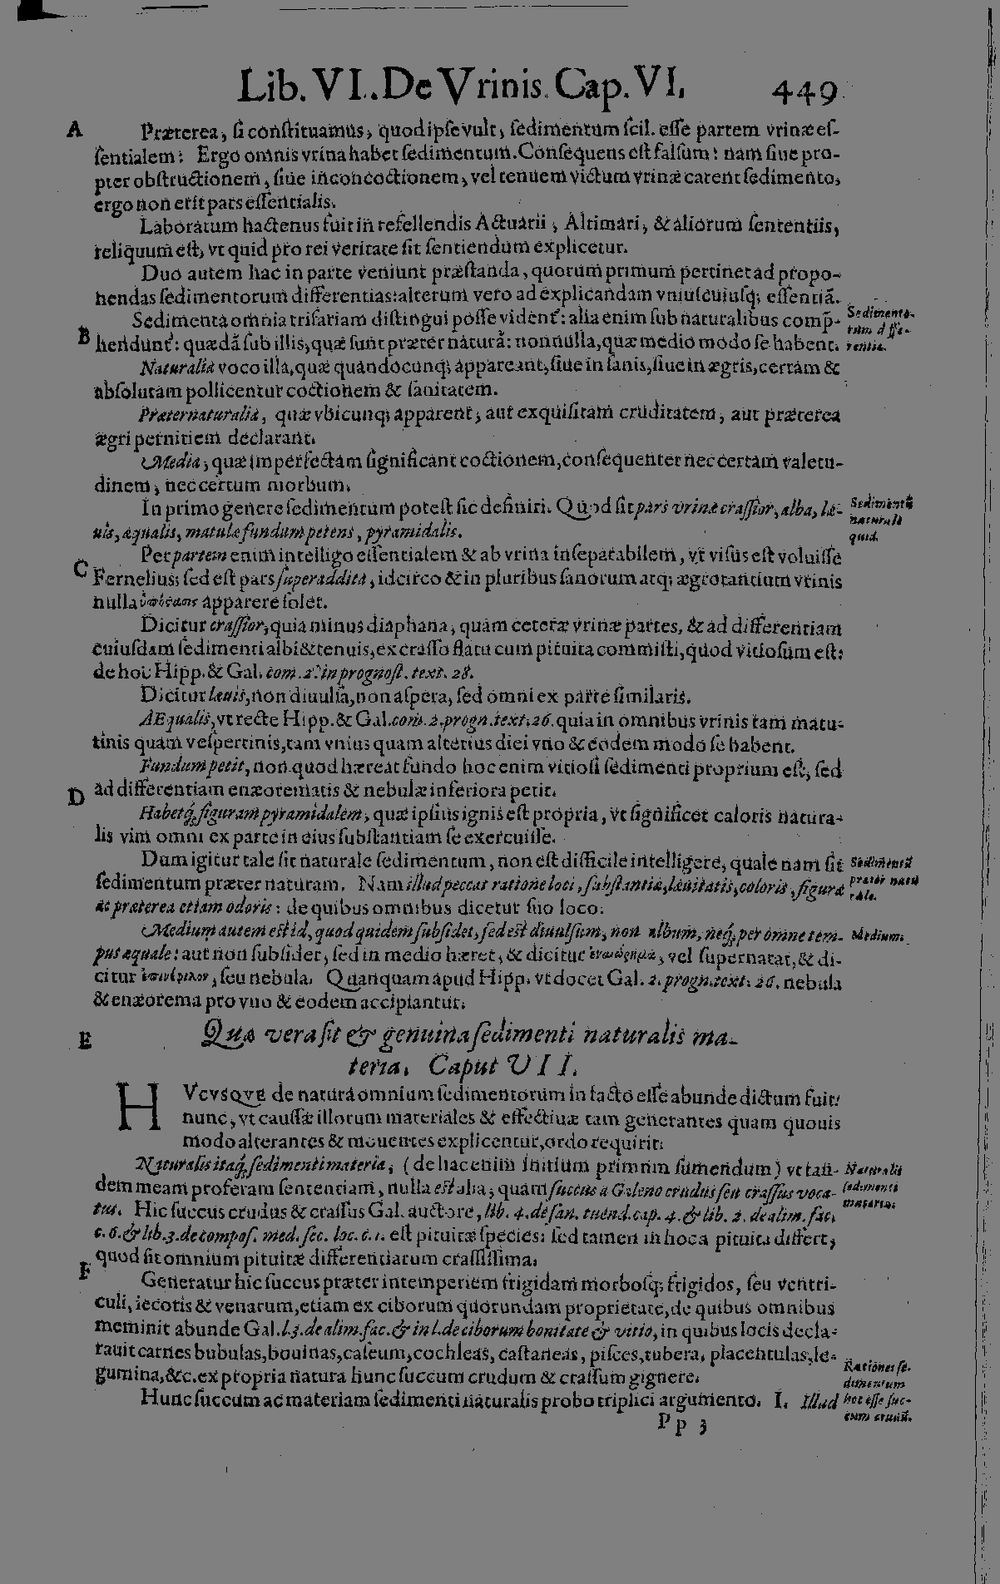 Lib. VI. De Vrinis. Cap. VI. 449
A Præterea, si constituamus, quod ipse vult, sedimentum scil. esse partem vrinæ es-
sentialem: Ergo omnis vrina habet sedimentum. Consequens est falsum: nam siue pro-
pter obstructionem, siue inconcoctionem, vel tenuem victum vrinæ carent sedimento,
ergo non erit pars essentialis.
Laboratum hactenus fuit in refellendis Actuarii, Altimari, & aliorum sententiis,
reliquum est, vt quid pro rei veritate sit sentiendum explicetur.
Duo autem hac in parte veniunt præstanda, quorum primum pertinet ad propo-
nendas sedimentorum differentias: alterum vero ad explicandam vniuscuiusq; essentiã.
Sedimenta omnia trifariam distingui posse vident̃: alia enim sub naturalibus comp̃-
B hendunt̃: quædã sub illis, quæ sunt præter naturã: nonnulla, quæ medio modo se habent.
Sedimento-
rum diffe-
rentia.
Naturalia voco illa, quæ quandocunq; appareant, siue in sanis, siue in ægris, certam &
absolutam pollicentur coctionem & sanitatem.
Præternaturalia, quæ vbicunq; apparent, aut exquisitam cruditatem, aut præterea
ægri pernitiem declarant.
Media, quæ imperfectam significant coctionem, consequenter nec certam valetu-
dinem, nec certum morbum.
In primo genere sedimentum potest sic definiri. Quod sit pars vrinæ crassior, alba, læ-
uis, æqualis, matulæ fundum petens, pyramidalis.
Sedimentũ
naturale
quid.
Per partem enim intelligo essentialem & ab vrina inseparabilem, vt visus est voluisse
C Fernelius: sed est pars superaddita, idcirco & in pluribus sanorum atq; ægrotantium vrinis
nulla ὑπόστασις apparere solet.
Dicitur crassior, quia minus diaphana, quam ceteræ vrinæ partes, & ad differentiam
cuiusdam sedimenti albi & tenuis, ex crasso flatu cum pituita commisti, quod vitiosum est:
de hoc Hipp. & Gal. com. 2. in prognost. text. 28.
Dicitur læuis, non diuulsa, non aspera, sed omni ex parte similaris.
Æqualis, vt recte Hipp. & Gal. com. 2. progn. text. 26. quia in omnibus vrinis tam matu-
tinis quam vespertinis, tam vnius quam alterius diei vno & eodem modo se habent.
Fundum petit, non quod hæreat fundo hoc enim vitiosi sedimenti proprium est, sed
D ad differentiam enæorematis & nebulæ inferiora petit.
Habetq; figuram pyramidalem, quæ ipsius ignis est propria, vt significet caloris natura-
lis vim omni ex parte in eius substantiam se exercuisse.
Dum igitur tale sit naturale sedimentum, non est difficile intelligere, quale nam sit
sedimentum præter naturam. Nam illud peccat ratione loci, substantiæ, læuitatis, coloris, figuræ
ac præterea etiam odoris: de quibus omnibus dicetur suo loco.
Sedimentũ
præter natu
rale.
Medium autem est id, quod quidem subsidet, sed est diuulsum, non album, neq; per omne tem-
pus æquale: aut non subsidet, sed in medio hæret, & dicitur ἐναιώρημα, vel supernatat, & di-
citur, seu nebula. Quanquam apud Hipp. vt docet Gal. 2. progn. text. 26. nebula
& enæorema pro vno & eodem accipiantur.
Medium.
E Quæ vera sit & genuina sedimenti naturalis ma-
teria. Caput VII.
HVcvsqve de natura omnium sedimentorum in facto esse abunde dictum fuit:
nunc, vt caussæ illorum materiales & effectiuæ tam generantes quam quouis
modo alterantes & mouentes explicentur, ordo requirit.
Naturalis itaq; sedimenti materia, (de hac enim initium primum sumendum) vt tan-
dem meam proferam sententiam, nulla est alia, quam succus a Galeno crudus seu crassus voca-
tus. Hic succus crudus & crassus Gal. auctore, lib. 4. de san. tuend. cap. 4. & lib. 2. de alim. fac.
c. 6. & lib. 3. de compos. med. sec. loc. c. 1. est pituitæ species: sed tamen in hoc a pituita differt,
F quod sit omnium pituitæ differentiarum crassissima.
Naturalis
sedimenti
materia.
Generatur hic succus præter intemperiem frigidam morbosq; frigidos, seu ventri-
culi, iecoris & venarum, etiam ex ciborum quorundam proprietate, de quibus omnibus
meminit abunde Gal. l. 3. de alim. fac. & in l. de ciborum bonitate & vitio, in quibus locis decla-
rauit carnes bubulas, bouinas, caseum, cochleas, castaneas, pisces, tubera, placentulas, le-
gumina, &c. ex propria natura hunc succum crudum & crassum gignere.
Hunc succum ac materiam sedimenti naturalis probo triplici argumento. I. Illud
Rationes se-
dimentum
hoc esse suc-
cum crudũ.
Pp 3